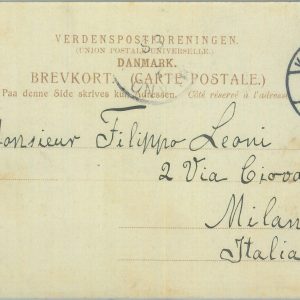 VERDENSPOSTFORENINGEN.
(UNION POSTALE UNIVERSELLE.)
DANMARK.
BREVKORT. (CARTE POSTALE.)
Paa denne Side skrives kun Adressen. Côté réservé à l'adress
onsieur Filippo Leoni
2 Via Ciova
Milan
Italia